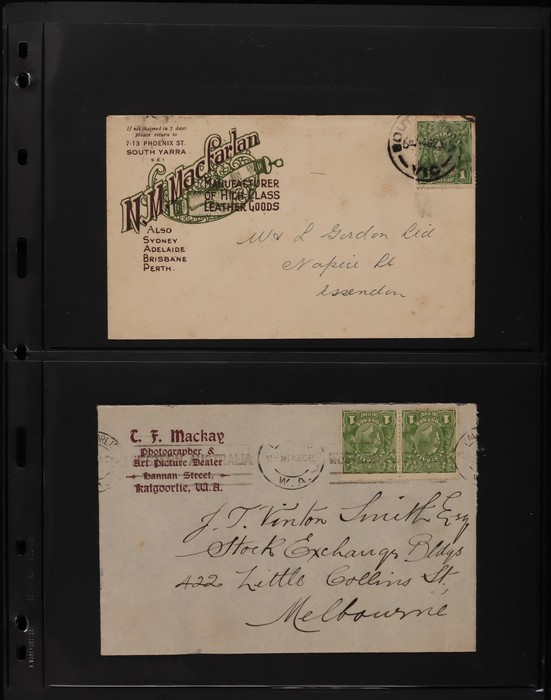 If not claimed in 7 days
please return to
7-13 PHOENIX ST.
SOUTH YARRA
S.E.1
N.M. Macfarlan
MANUFACTURER
OF HIGH CLASS
LEATHER GOODS
ALSO
SYDNEY
ADELAIDE
BRISBANE
PERTH.
SOUTH
VIC
1
Gordon
Napier St
Essendon
C. F. Mackay
Photographer &
Art Picture Dealer
Hannan Street,
Kalgoorlie, W.A.
W.A.
1 1
1 1
J. T. Vinton Smith Esq
Stock Exchange Bldgs
422 Little Collins St,
Melbourne